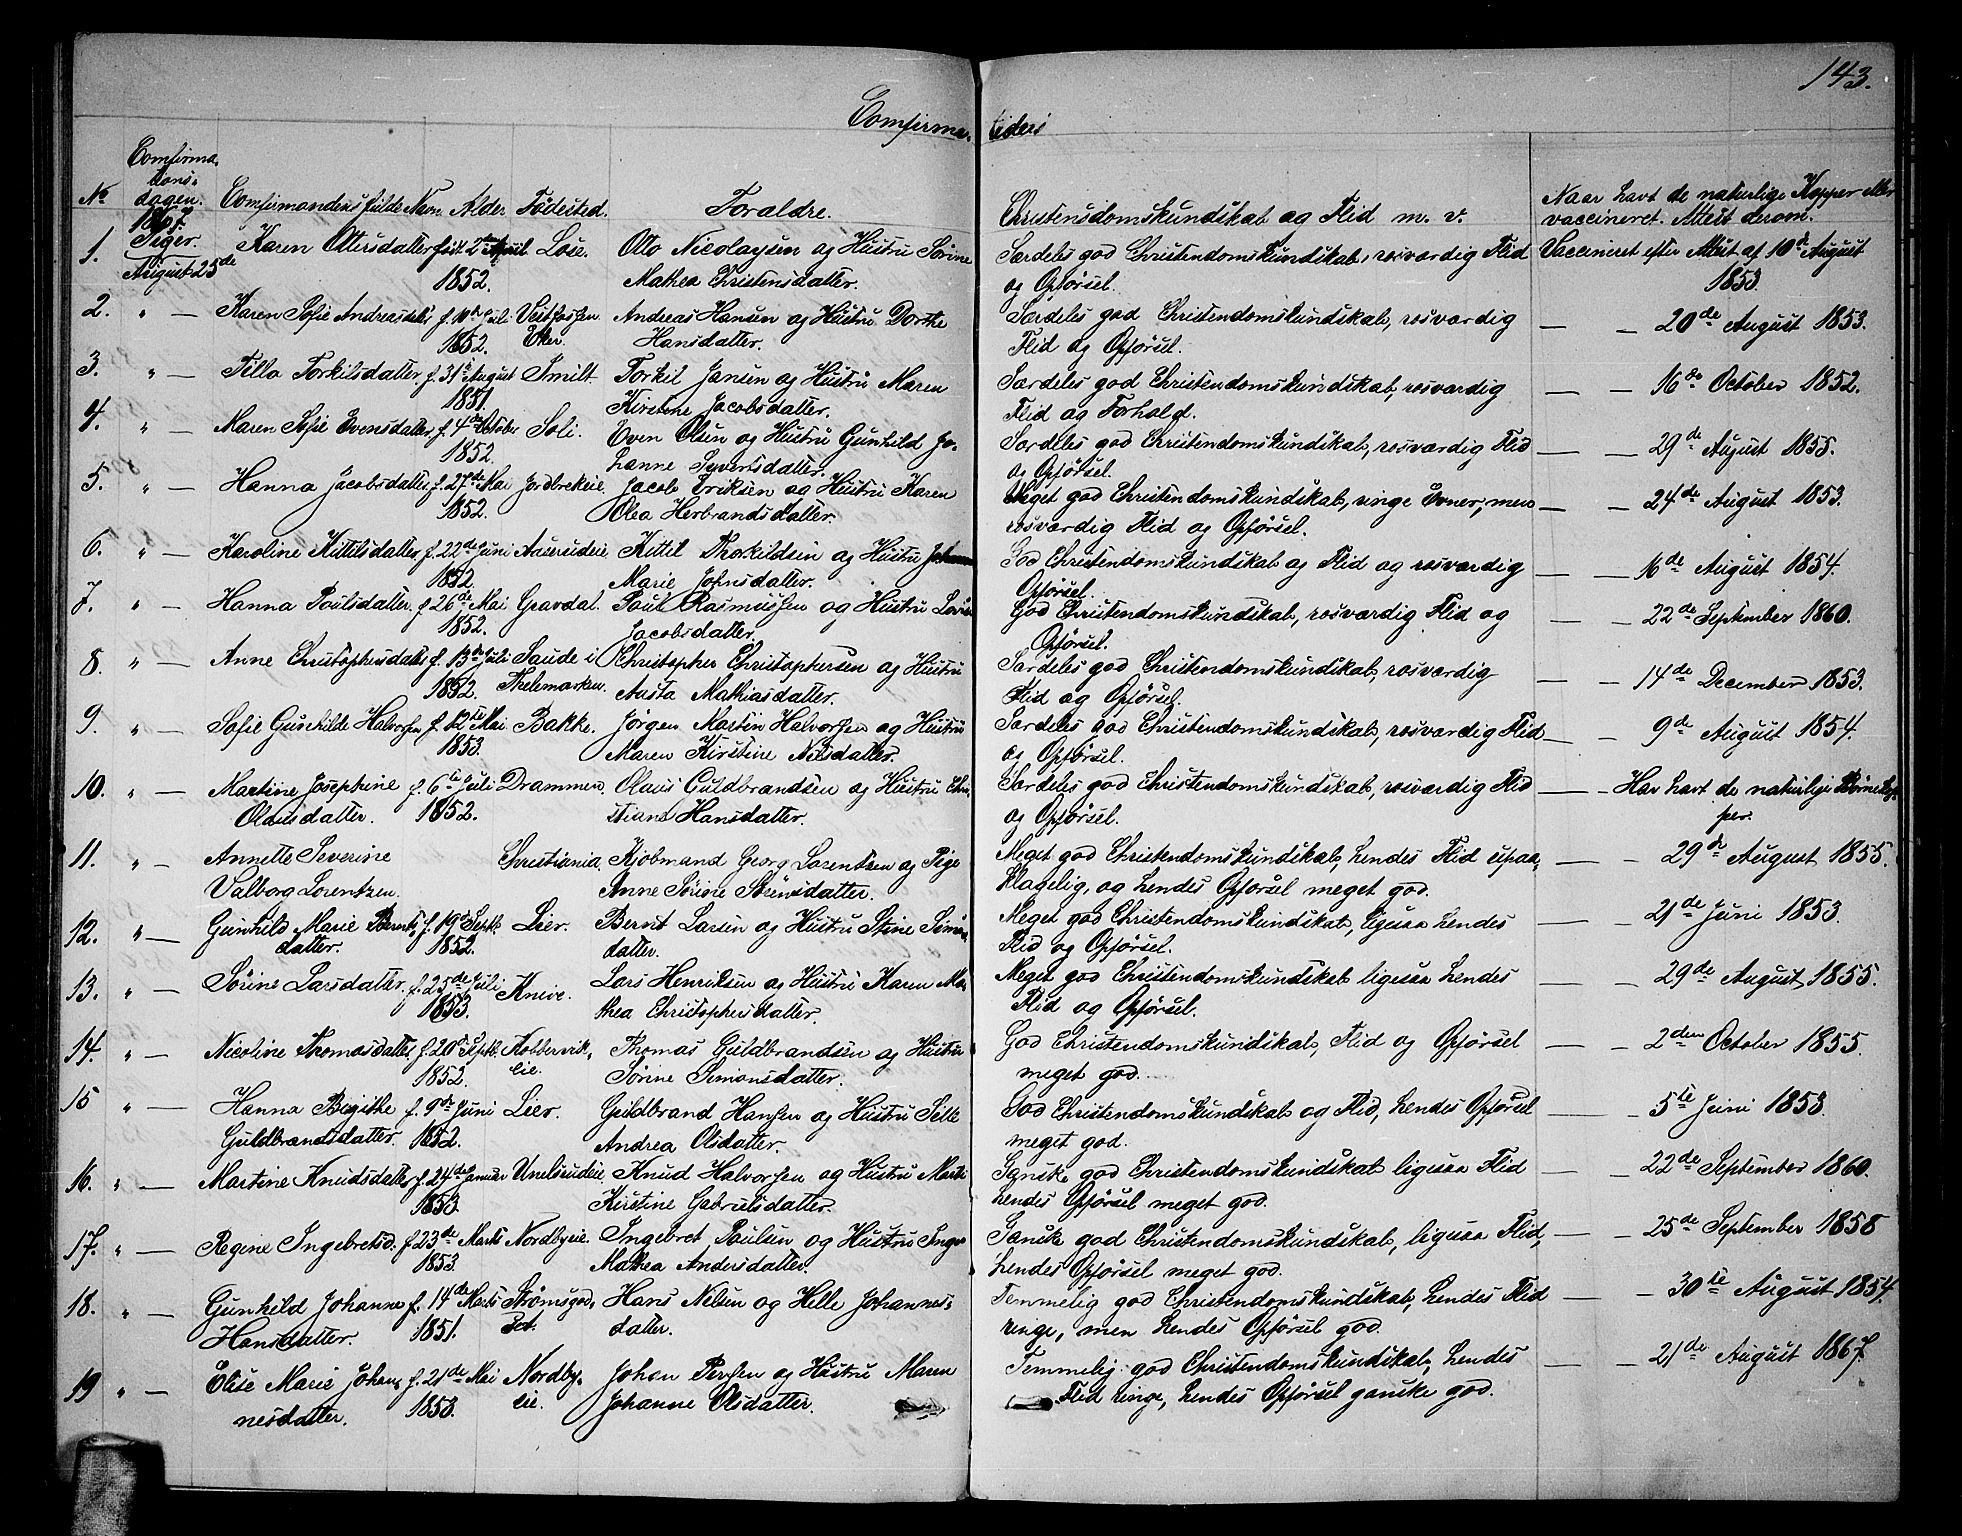 143.
Confirme- rede
No Confirma- tions- dagen. Confirmandens fulde Navn. Alder Fødested. Forældre. Christendomskundskab og Flid m. v. Naar havt de naturlige Kopper eller
vaccineret. Attest derom.
1867.
Piger.
1. August 25de Karen Ottersdatter født 2den April Løse. Otto Nicolaysen og Hustru Sørine Særdeles god Christendomskundskab, rosværdig Flid Vaccineret efter Attest af 10de August
1852. Mathea Christensdatter. og Opførsel. 1853.
2. " — Karen Sofie Andreasdatter f. 10de Juli Vestfossen Andreas Hansen og Hustru Dorthe Særdeles god Christendomskundskab, rosværdig — — 20de August 1853.
1852. Eker. Hansdatter. Flid og Opførsel.
3. " — Tilla Torkilsdatter f. 31te August Smilt. Torkil Jansen og Hustru Maren Særdeles god Christendomskundskab, rosværdig — — 16de October 1852.
1851. Kirstine Jacobsdatter. Flid og Forhold.
4. " — Maren Sofie Evensdatter f. 4de October Soli. Even Olsen og Hustru Gunhild Jo- Særdeles god Christendomskundskab, rosværdig Flid — — 29de August 1855.
1852. hanne Syvertsdatter. og Opførsel.
5. " — Hanna Jacobsdatter f. 27de Mai Jordbrekeie Jacob Eriksen og Hustru Karen Meget god Christendomskundskab, ringe Evner, men — — 24de August 1853.
1852. Olea Herbrandsdatter. rosværdig Flid og Opførsel.
6. " — Karoline Kittilsdatter f. 22de Juni Aaserudeie Kittil Thorkildsen og Hustru Johanne God Christendomskundskab og Flid og rosværdig — — 16de August 1854.
1852. Marie Johnsdatter. Opførsel.
7. " — Hanna Poulsdatter f. 26de Mai Gravdal. Poul Rasmussen og Hustru Lovise God Christendomskundskab, rosværdig Flid og — — 22de September 1860.
1852. Jacobsdatter. Opførsel.
8. " — Anne Christophersdatter f. 13de Juli Saude i Christopher Christophersen og Hustru Særdeles god Christendomskundskab, rosværdig — — 14de December 1853.
1852. Thelemarken. Aasta Mathiasdatter. Flid og Opførsel.
9. " — Sofie Gunhilde Halvorsen f. 12te Mai Bakke. Jørgen Martin Halvorsen og Hustru Særdeles god Christendomskundskab, rosværdig Flid — — 9de August 1854.
1853. Maren Kirstine Nilsdatter. og Opførsel.
10. " — Martine Josephine f. 6te Juli Drammen. Olaus Guldbrandsen og Hustru Chri- Særdeles god Christendomskundskab, rosværdig Flid — — Har havt de naturlige Børnekop-
Olausdatter. 1852. stiane Hansdatter. og Opførsel. per.
11. " — Annette Severine Christiania. Kjøbmand Georg Lorentzen og Pige Meget god Christendomskundskab, hendes Flid upaa- — — 29de August 1855.
Valborg Lorentzen. Anne Sørine Sørensdatter. klagelig, og hendes Opførsel meget god.
12. " — Gunhild Marie Bernts- f. 19de Septb. Lier. Bernt Larsen og Hustru Stine Simens- Meget god Christendomskundskab, ligesaa hendes — — 21de Juni 1853.
datter. 1852. datter. Flid og Opførsel.
13. " — Sørine Larsdatter f. 25de Juli Knive. Lars Henriksen og Hustru Karen Ma- Meget god Christendomskundskab ligesaa hendes — — 29de August 1855.
1853. thea Christophersdatter. Flid og Opførsel.
14. " — Nicoline Thomasdatter f. 20de Septb. Kobbervik- Thomas Guldbrandsen og Hustru God Christendomskundskab, Flid og Opførsel — — 2den October 1855.
1852. eie. Sørine Simonsdatter. meget god.
15 " — Hanna Birgithe f. 9de Juni Lier. Guldbrand Hansen og Hustru Sille God Christendomskundskab og Flid, hendes Opførsel — — 5te Juni 1853.
Guldbrandsdatter. 1852. Andrea Olsdatter. meget god.
16. " — Martine Knudsdatter f. 24de Januar Unelsrudeie. Knud Halvorsen og Hustru Marthe Ganske god Christendomskundskab ligesaa Flid — — 22de September 1860.
1853. Kirstine Gabrielsdatter. hendes Opførsel meget god.
17. " — Regine Ingebretsd. f. 23de Marts Nordbyeie. Ingebret Poulsen og Hustru Inger Ganske god Christendomskundskab, ligesaa Flid, — — 25de September 1858
1853. Mathea Andersdatter. hendes Opførsel meget god.
18. " — Gunhild Johanne f. 14de Marts Strømsgod- Hans Nilsen og Helle Johannes- Temmelig god Christendomskundskab, hendes Flid — — 30te August 1854.
Hansdatter. 1851. set. datter. ringe, men hendes Opførsel god.
19 " — Elise Marie Johan- f. 21de Mai Nordby- Johan Persen og Hustru Maren Temmelig god Christendomskundskab, hendes — — 21de August 1867.
nesdatter. 1853. eie. Johanne Olsdatter. Flid ringe, hendes Opførsel ganske god.